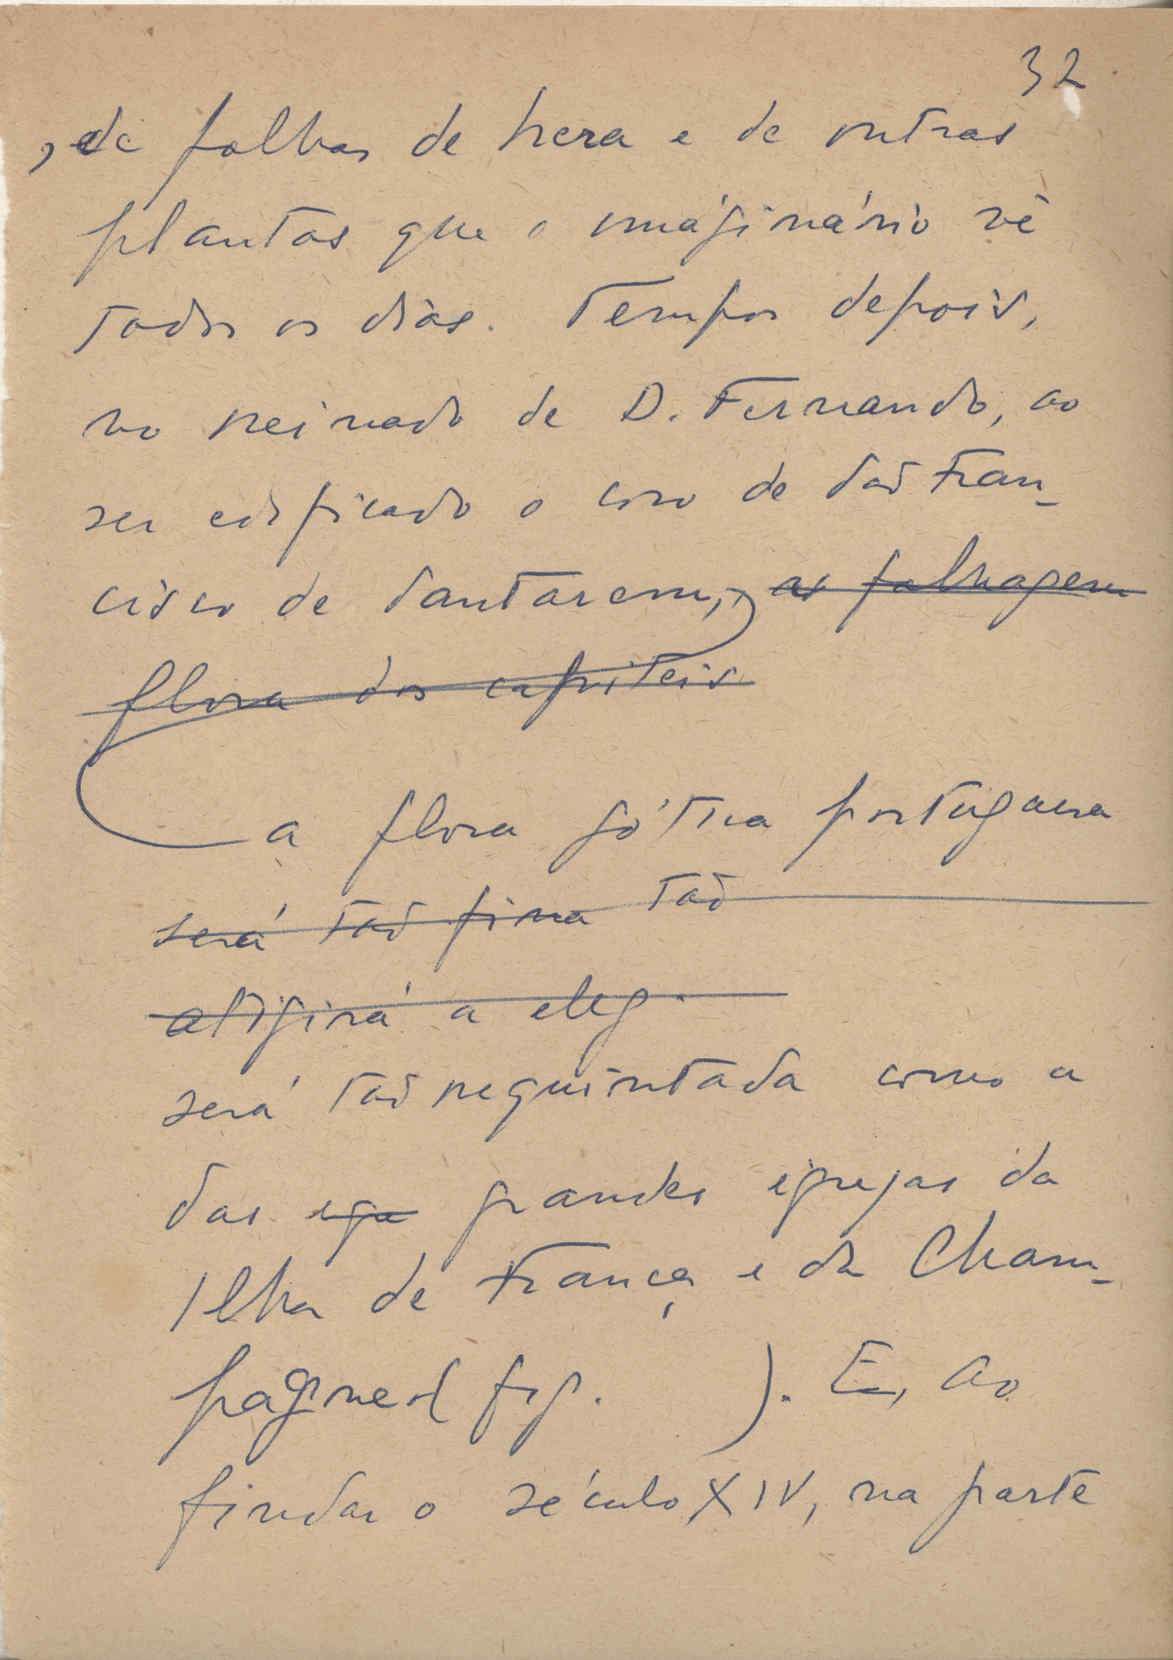 32
, de folhas de hera e de outras
plantas que o imáginário vê
todos os dias. Tempos depois,
no reinado de D. Fernando, ao
ser edificado o coro de São Fran-
cisco de Santarem, as folhagem
flora dos capiteis
a flora gótica portuguesa
será tão fina tão
atigirá a eleg.
será tão requintada como a
das igr grandes igrejas da
Ilha de França e da Cham-
pagne (fig. ). E, ao
findar o século XIV, na parte